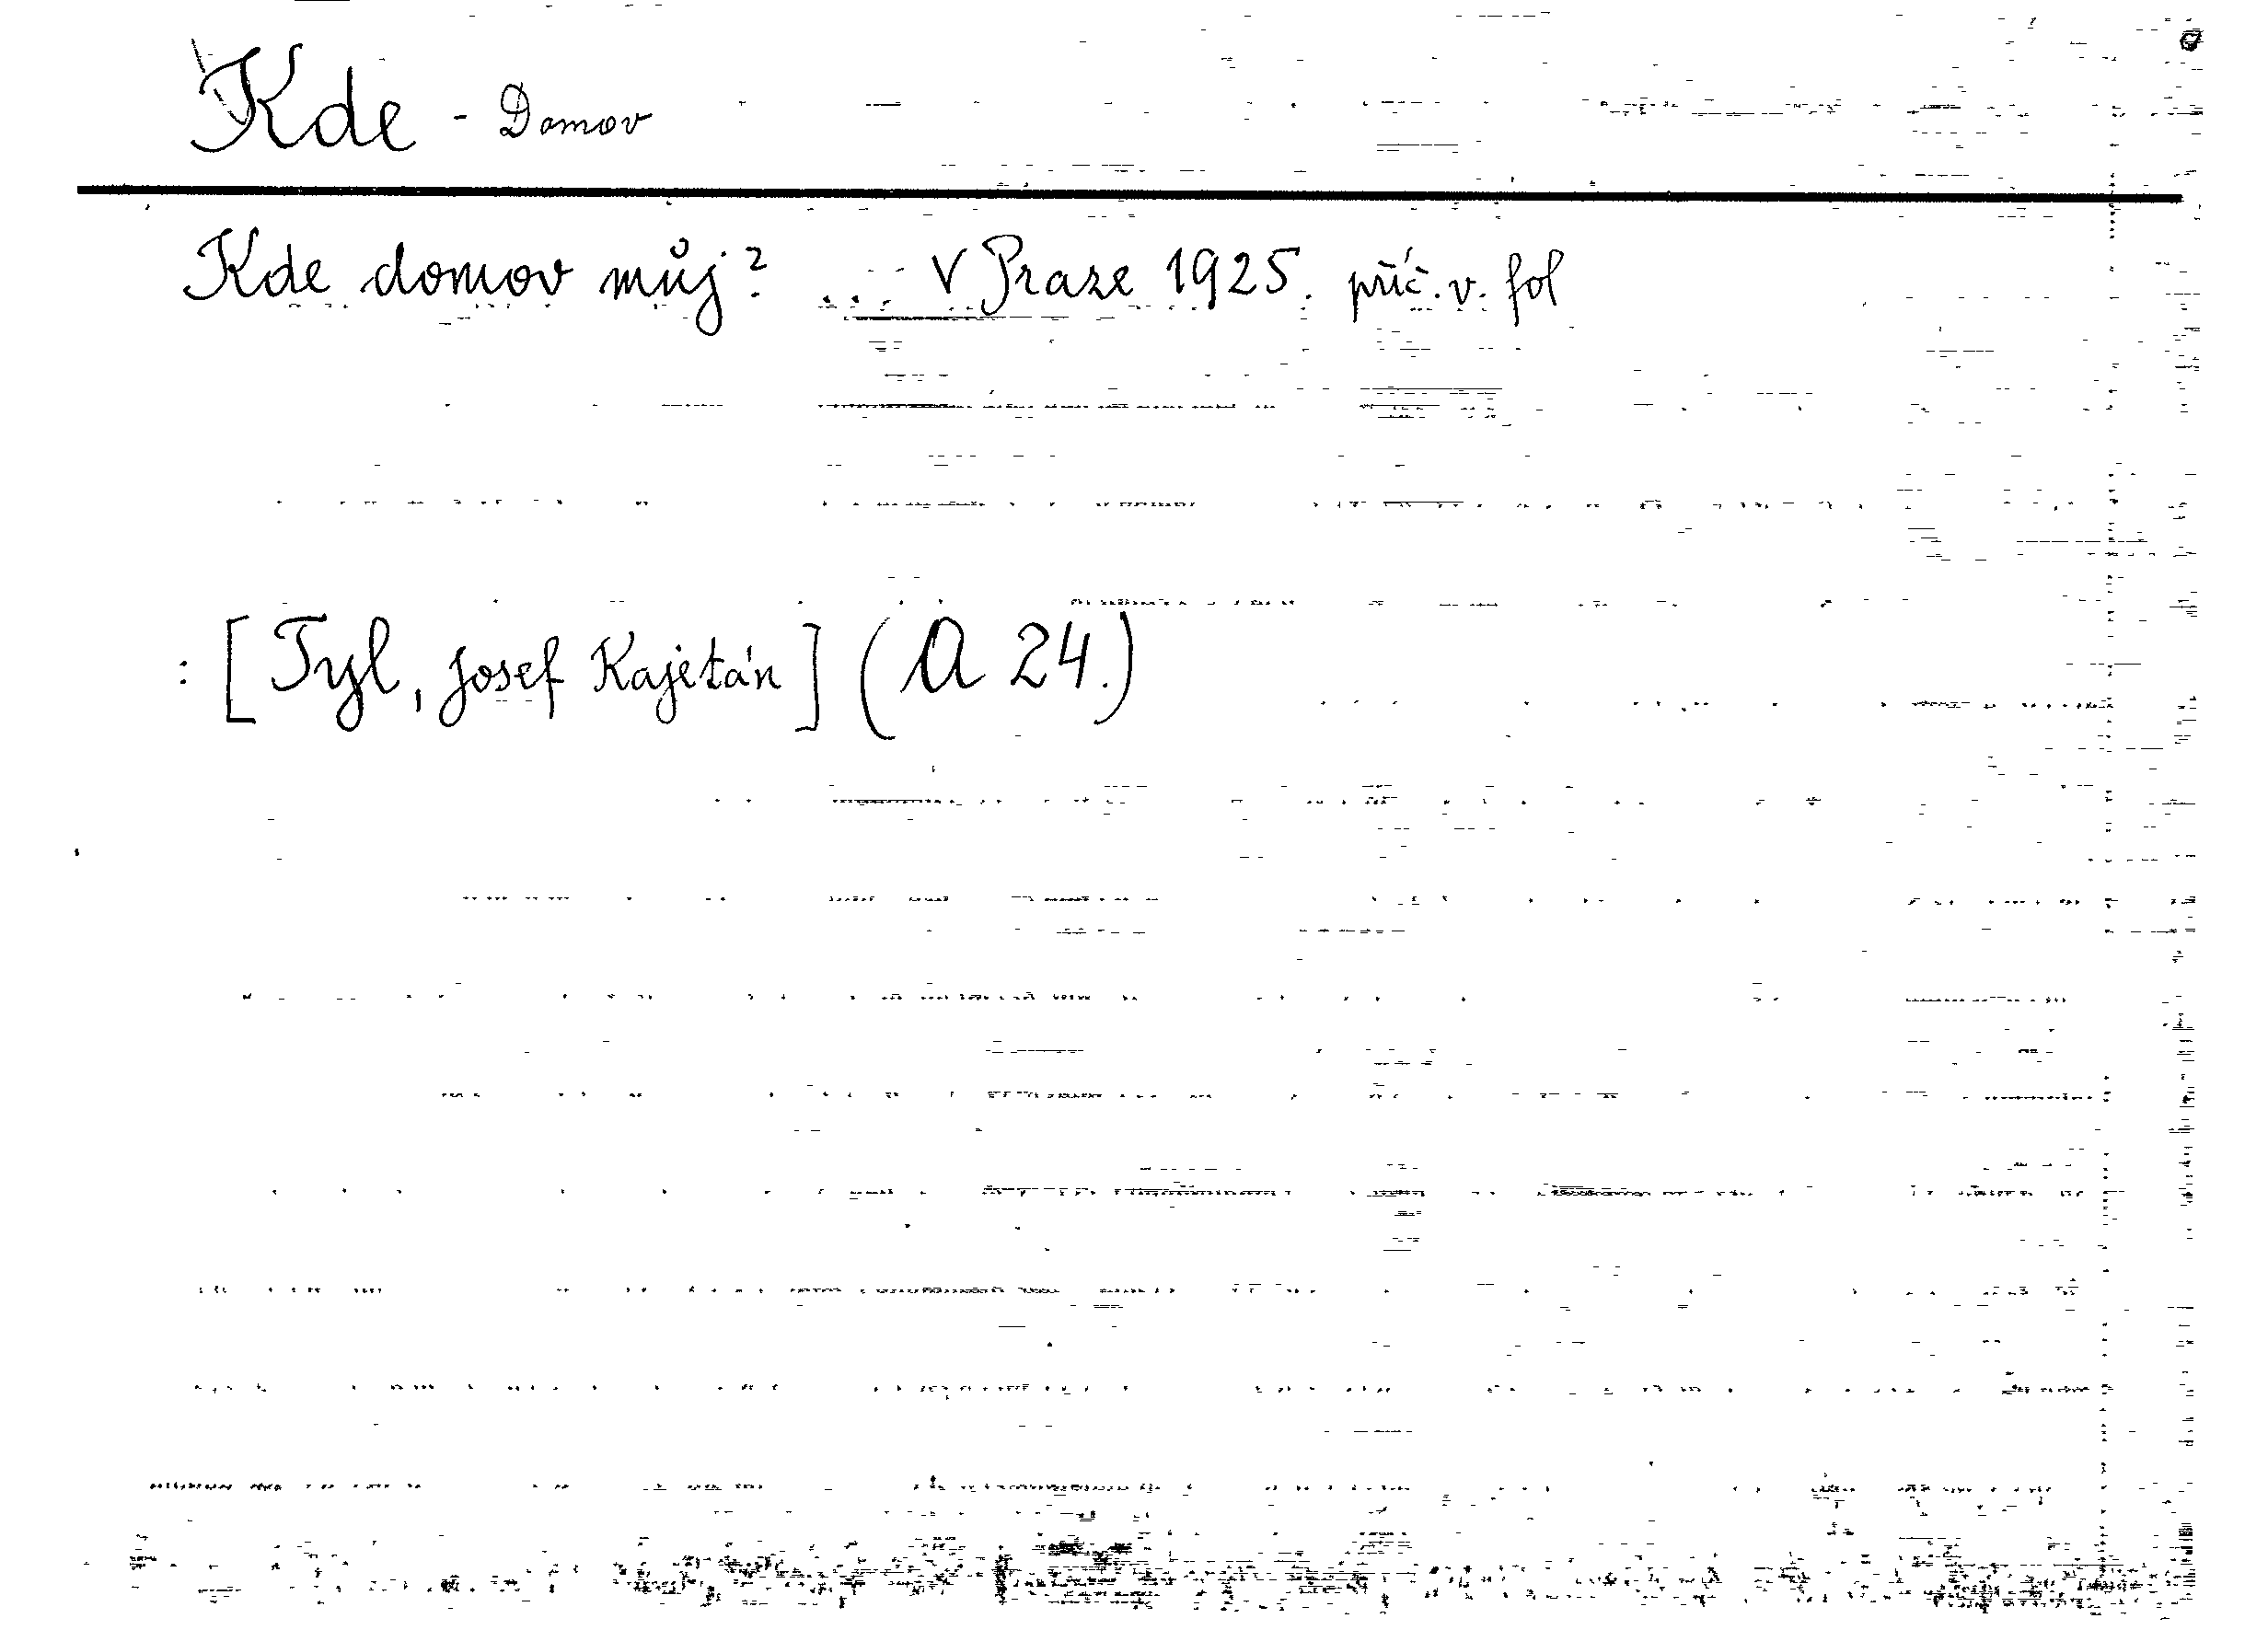 Kde - Domov
Kde domov můj? ... V Praze 1925. příč. v. fol
: [Tyl, Josef Kajetán] (A 24.)